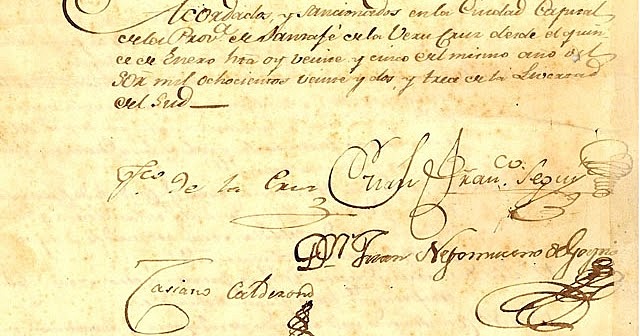 Acordados, y sancionados en la Ciudad Capital
de la Prov.ª de Santafé de la Vera Cruz desde el quin
ce de Enero hta oy veinte y cinco del mismo año del
Sor mil ochocientos veinte y dos y trece de la Livertad
del Sud
Fco. de la Cruz Juan Fran.co Seguí
Dr. Juan Nepomuceno de Goytia
Casiano Calderon